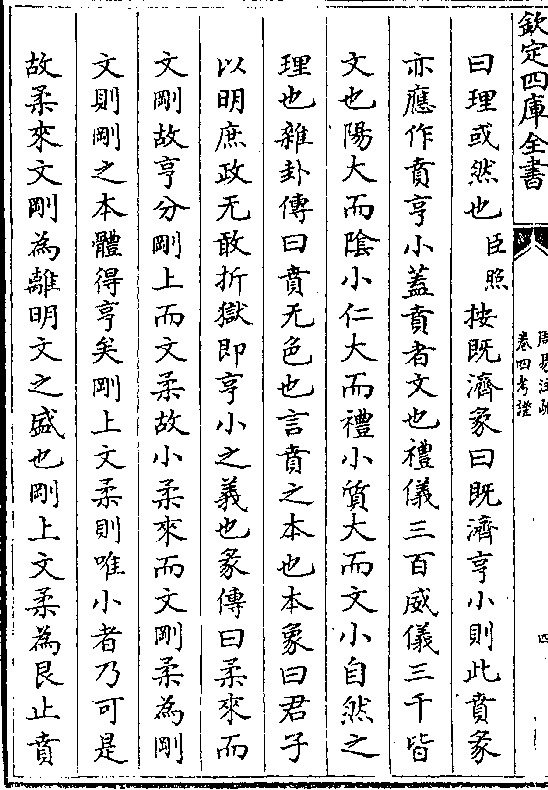 欽定四庫全書
周易注疏
卷四考證
四
曰理或然也臣照按既濟彖曰既濟亨小則此賁彖
亦應作賁亨小蓋賁者文也禮儀三百威儀三千皆
文也陽大而陰小仁大而禮小質大而文小自然之
理也雜卦傳曰賁无色也言賁之本也本象曰君子
以明庶政无敢折獄即亨小之義也彖傳曰柔來而
文剛故亨分剛上而文柔故小柔來而文剛柔為剛
文則剛之本體得亨矣剛上文柔則唯小者乃可是
故柔來文剛為離明文之盛也剛上文柔為艮止賁